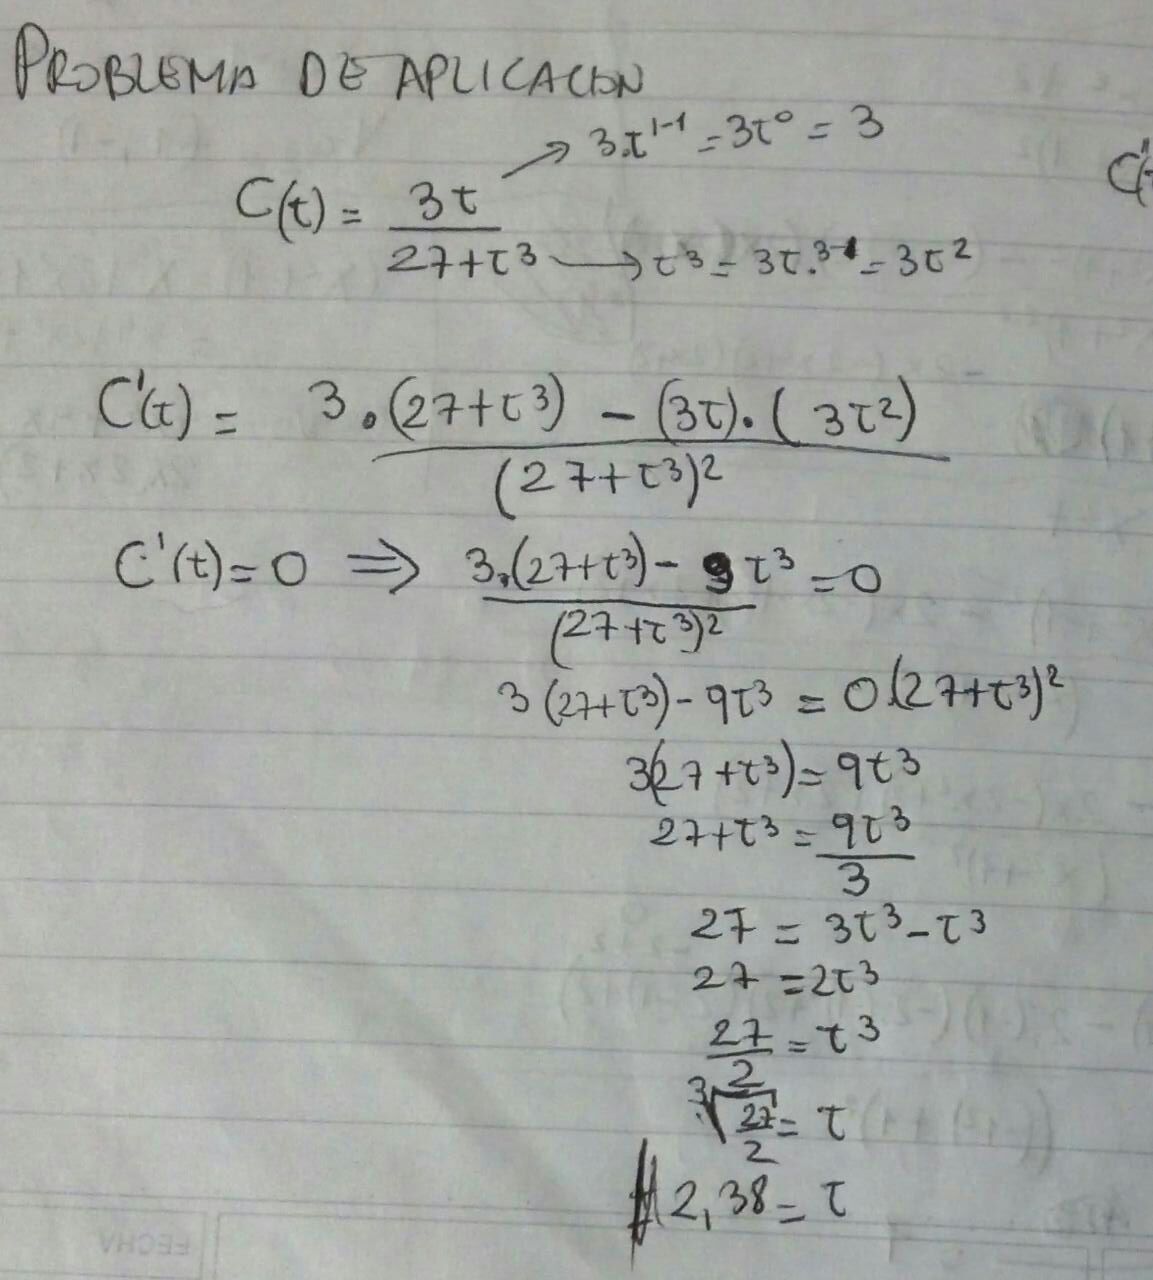 PROBLEMA DE APLICACION
→ 3.t¹⁻¹ = 3t⁰ = 3
C(t) = 3t / 27+t³ → t³ = 3t.³⁻¹ = 3t²
C'(t) = 3.(27+t³) - (3t).(3t²) / (27+t³)²
C'(t) = 0 ⇒ 3.(27+t³) - 9t³ / (27+t³)² = 0
3(27+t³) - 9t³ = 0.(27+t³)²
3(27+t³) = 9t³
27+t³ = 9t³ / 3
27 = 3t³ - t³
27 = 2t³
27/2 = t³
³√27/2 = t
2,38 = t
FECHA